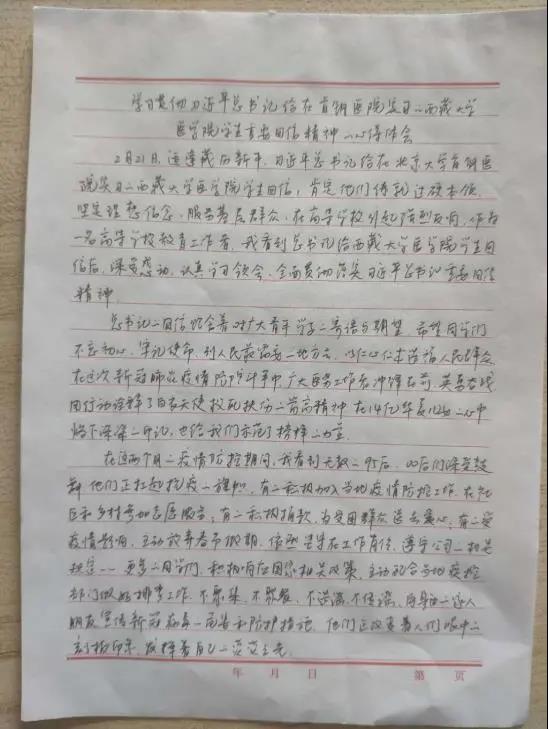 学习贯彻习近平总书记给在首钢医院实习的西藏大学
医学院学生重要回信精神的心得体会
2月21日，适逢藏历新年，习近平总书记给在北京大学首钢医
院实习的西藏大学医学院学生回信，肯定他们练就过硬本领、
坚定理想信念、服务基层群众，在高等学校引起强烈反响，作为
一名高等学校教育工作者，我看到总书记给西藏大学医学院学生回
信后，深受感动，认真学习领会、全面贯彻落实习近平总书记重要回信
精神。
总书记的回信饱含着对广大青年学子的寄语与期望，希望同学们
不忘初心、牢记使命，到人民最需要的地方去，以仁心仁术造福人民群众，
在这次新冠肺炎疫情防控斗争中广大医务工作者冲锋在前、英勇奋战，
用行动诠释了白衣天使救死扶伤的崇高精神，在14亿华夏儿女的心中
烙下深深的印记，也给我们示范了榜样的力量。
在这两个月的疫情防控期间，我看到无数的95后、00后们深受鼓
舞，他们正扛起抗疫的旗帜，有的积极加入当地疫情防控工作，在社
区和乡村参加志愿服务；有的积极捐款，为受困群众送去爱心；有的受
疫情影响，主动放弃春节假期，依然坚守在工作岗位，遵守公司的相关
规定……更多的同学们，积极响应国家相关政策，主动配合当地疫控
部门做好排查工作，不聚集、不聚餐、不造谣、不传谣，向身边的家人
朋友宣传新冠病毒的危害和防护措施，他们正改变着人们眼中的
刻板印象，发挥着自己的荧荧之光。
年 月 日 第 页